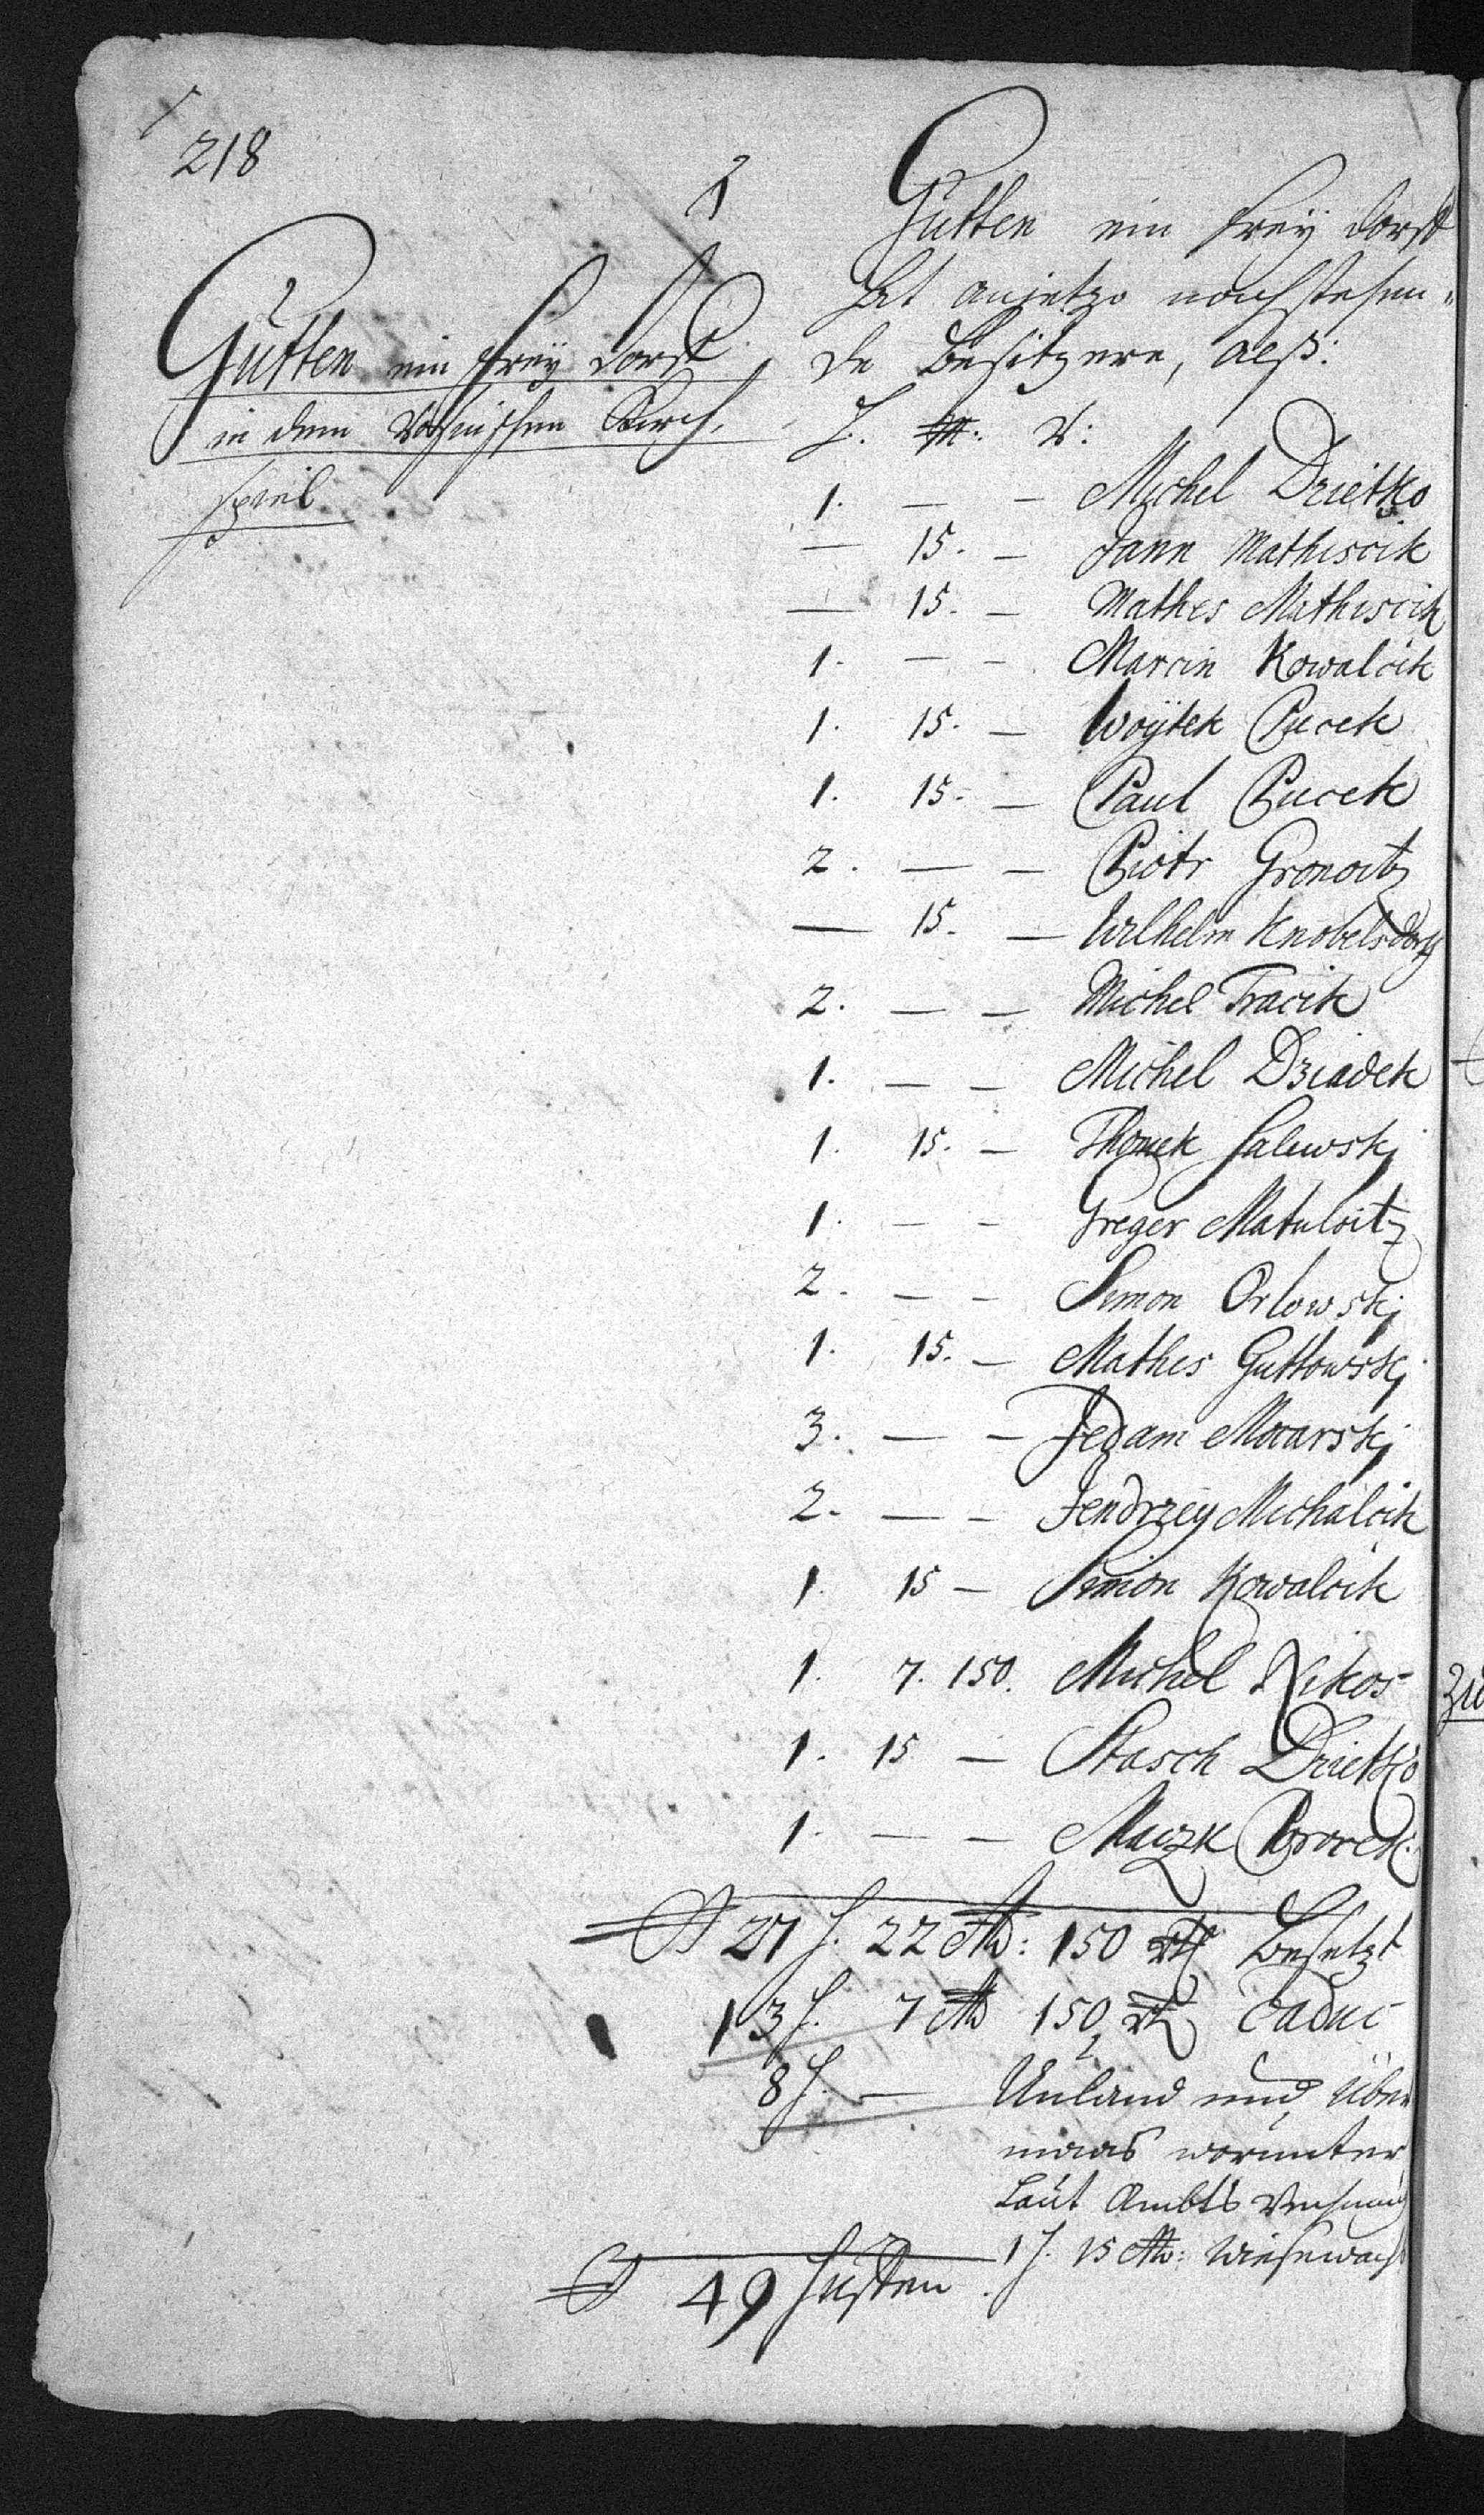 218
Gutten ein frey dorff
in dem Rosinschen Kirch,
spiel
Gutten ein frey dorff
hat anjetzo nachstehen„
de Besitzere, alß:
H. M: R:
1. — — Michel Dzietko
— 15. — Jann Mathiscik
— 15. — Mathes Mathiscik
1. — — Marcin Kowalcik
1. 15. — Woÿtek Pucek
1. 15. — Paul Pucek
2. — — Piotr Gronoitz
— 15. — Wilhelm Knobelsdorf
2. — — Michel Tracik
1. — — Michel Dziadek
1. 15. — Thomek Salewskj
1. — — Greger Matuloitz
2. — — Simon Orlowskj
1. 15. — Mathes Guttowskj
3. — — Jedam Mocarskj
2. — — Jendrzey Michalcik
1. 15 — Simon Kowalcik
1. 7. 150. Michel Nikos
1. 15 — Stasch Dzietko
1. — — Maczk
27 H. 22 M: 150 R besetzt
13 H. 7 M 150 R Caduc
8 H. — Unland und Über
maas worunter
Laut Ambts
1 H. 15 M: Wiesewachs
49 Huffen.